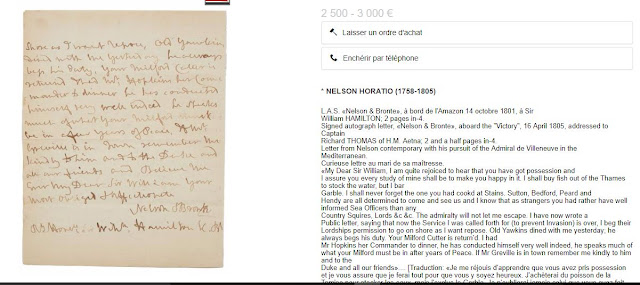 shore as I want repose, Old Yawkins
dined with me yesterday he always
begs his duty, Your Milford Cutter is
returned Had Mr. Hopkins her Com
mander to dinner he has conducted
himself very well indeed he speaks
much of what your Milford must
be in after years of Peace. If Mr.
Greville is in town remember me
kindly to him and to the Duke and
all our friends and Believe me
Ever My Dear Sir William Your
most obliged & affectionate
Nelson & Bronte
Sir Wm Hamilton K.B.
2 500 - 3 000 €
Laisser un ordre d'achat
Enchérir par téléphone
* NELSON HORATIO (1758-1805)
L.A.S. «Nelson & Bronte», à bord de l'Amazon 14 octobre 1801, à Sir
William HAMILTON; 2 pages in-4.
Signed autograph letter, «Nelson & Bronte», aboard the "Victory", 16 April 1805, addressed to
Captain
Richard THOMAS of H.M. Aetna; 2 and a half pages in-4.
Letter from Nelson contemporary with his pursuit of the Admiral de Villeneuve in the
Mediterranean.
Curieuse lettre au mari de sa maîtresse.
«My Dear Sir William, I am quite rejoiced to hear that you have got possession and
I assure you every study of mine shall be to make you happy in it. I shall buy fish out of the Thames
to stock the water, but I bar
Garble. I shall never forget the one you had cookd at Stains. Sutton, Bedford, Peard and
Hendy are all determined to come and see us and I know that as strangers you had rather have well
informed Sea Officers than any
Country Squires, Lords & &c. The admiralty will not let me escape. I have now wrote a
Public letter, saying that now the Service I was called forth for (to prevent Invasion) is over, I beg their
Lordships permission to go on shore as I want repose. Old Yawkins dined with me yesterday, he
always begs his duty. Your Milford Cutter is return'd. I had
Mr Hopkins her Commander to dinner, he has conducted himself very well indeed, he speaks much of
what your Milford must be in after years of Peace. If Mr Greville is in town remember me kindly to him
and to the
Duke and all our friends»... [Traduction: «Je me réjouis d'apprendre que vous avez pris possession
et je vous assure que je ferai tout pour que vous y soyez heureux. J'achèterai du poisson de la